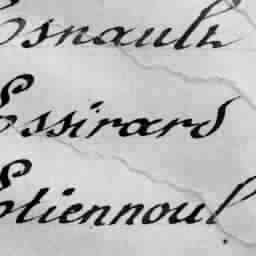 Esnault
Essirard
Etiennoul